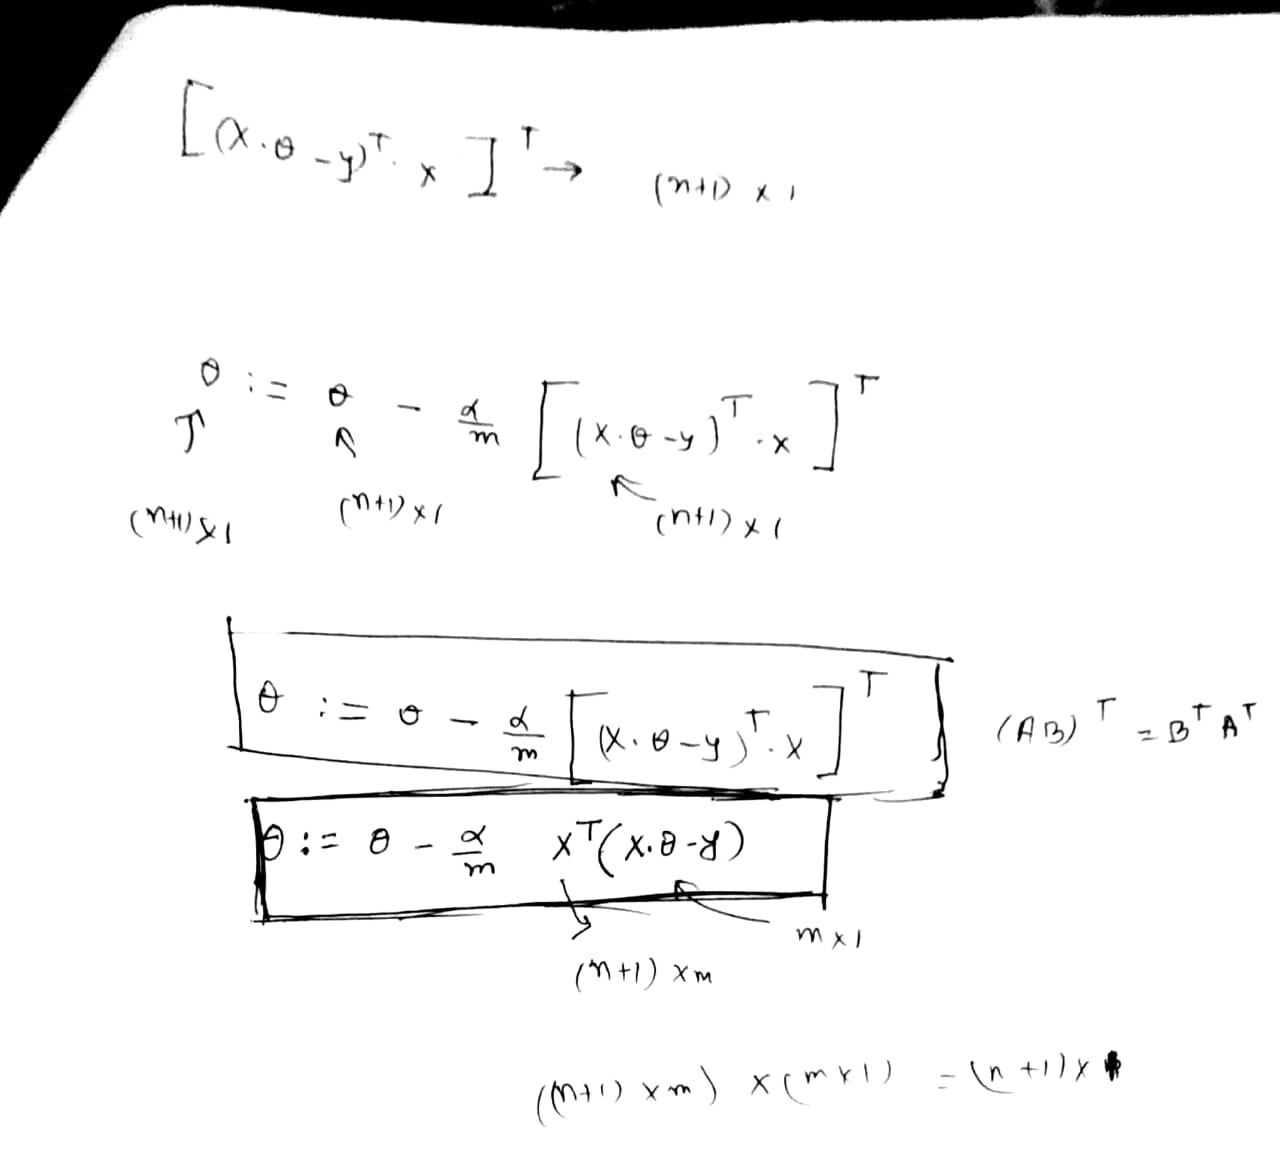 [(X.θ - y)ᵀ. x]ᵀ → (n+1) x 1
θ := θ - α/m [(x.θ - y)ᵀ . x]ᵀ
(n+1) x 1 (n+1) x 1 (n+1) x 1
θ := θ - α/m [(x.θ - y)ᵀ . x]ᵀ (AB)ᵀ = Bᵀ Aᵀ
θ := θ - α/m xᵀ(x.θ - y)
m x 1
(n+1) x m
((n+1) x m) x (m x 1) = (n+1) x